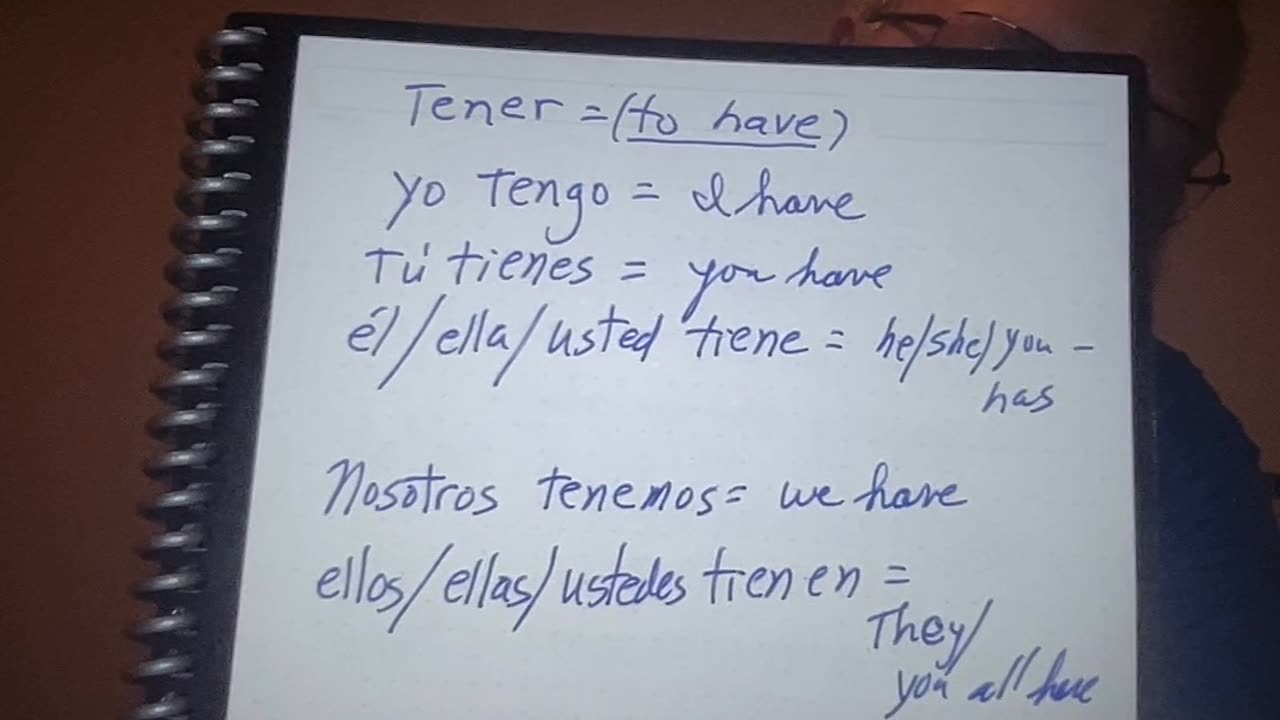 Tener = (to have)
yo Tengo = I have
Tú tienes = you have
él/ella/usted tiene = he/she/you -
has
Nosotros tenemos = we have
ellos/ellas/ustedes tienen =
They/
you all have